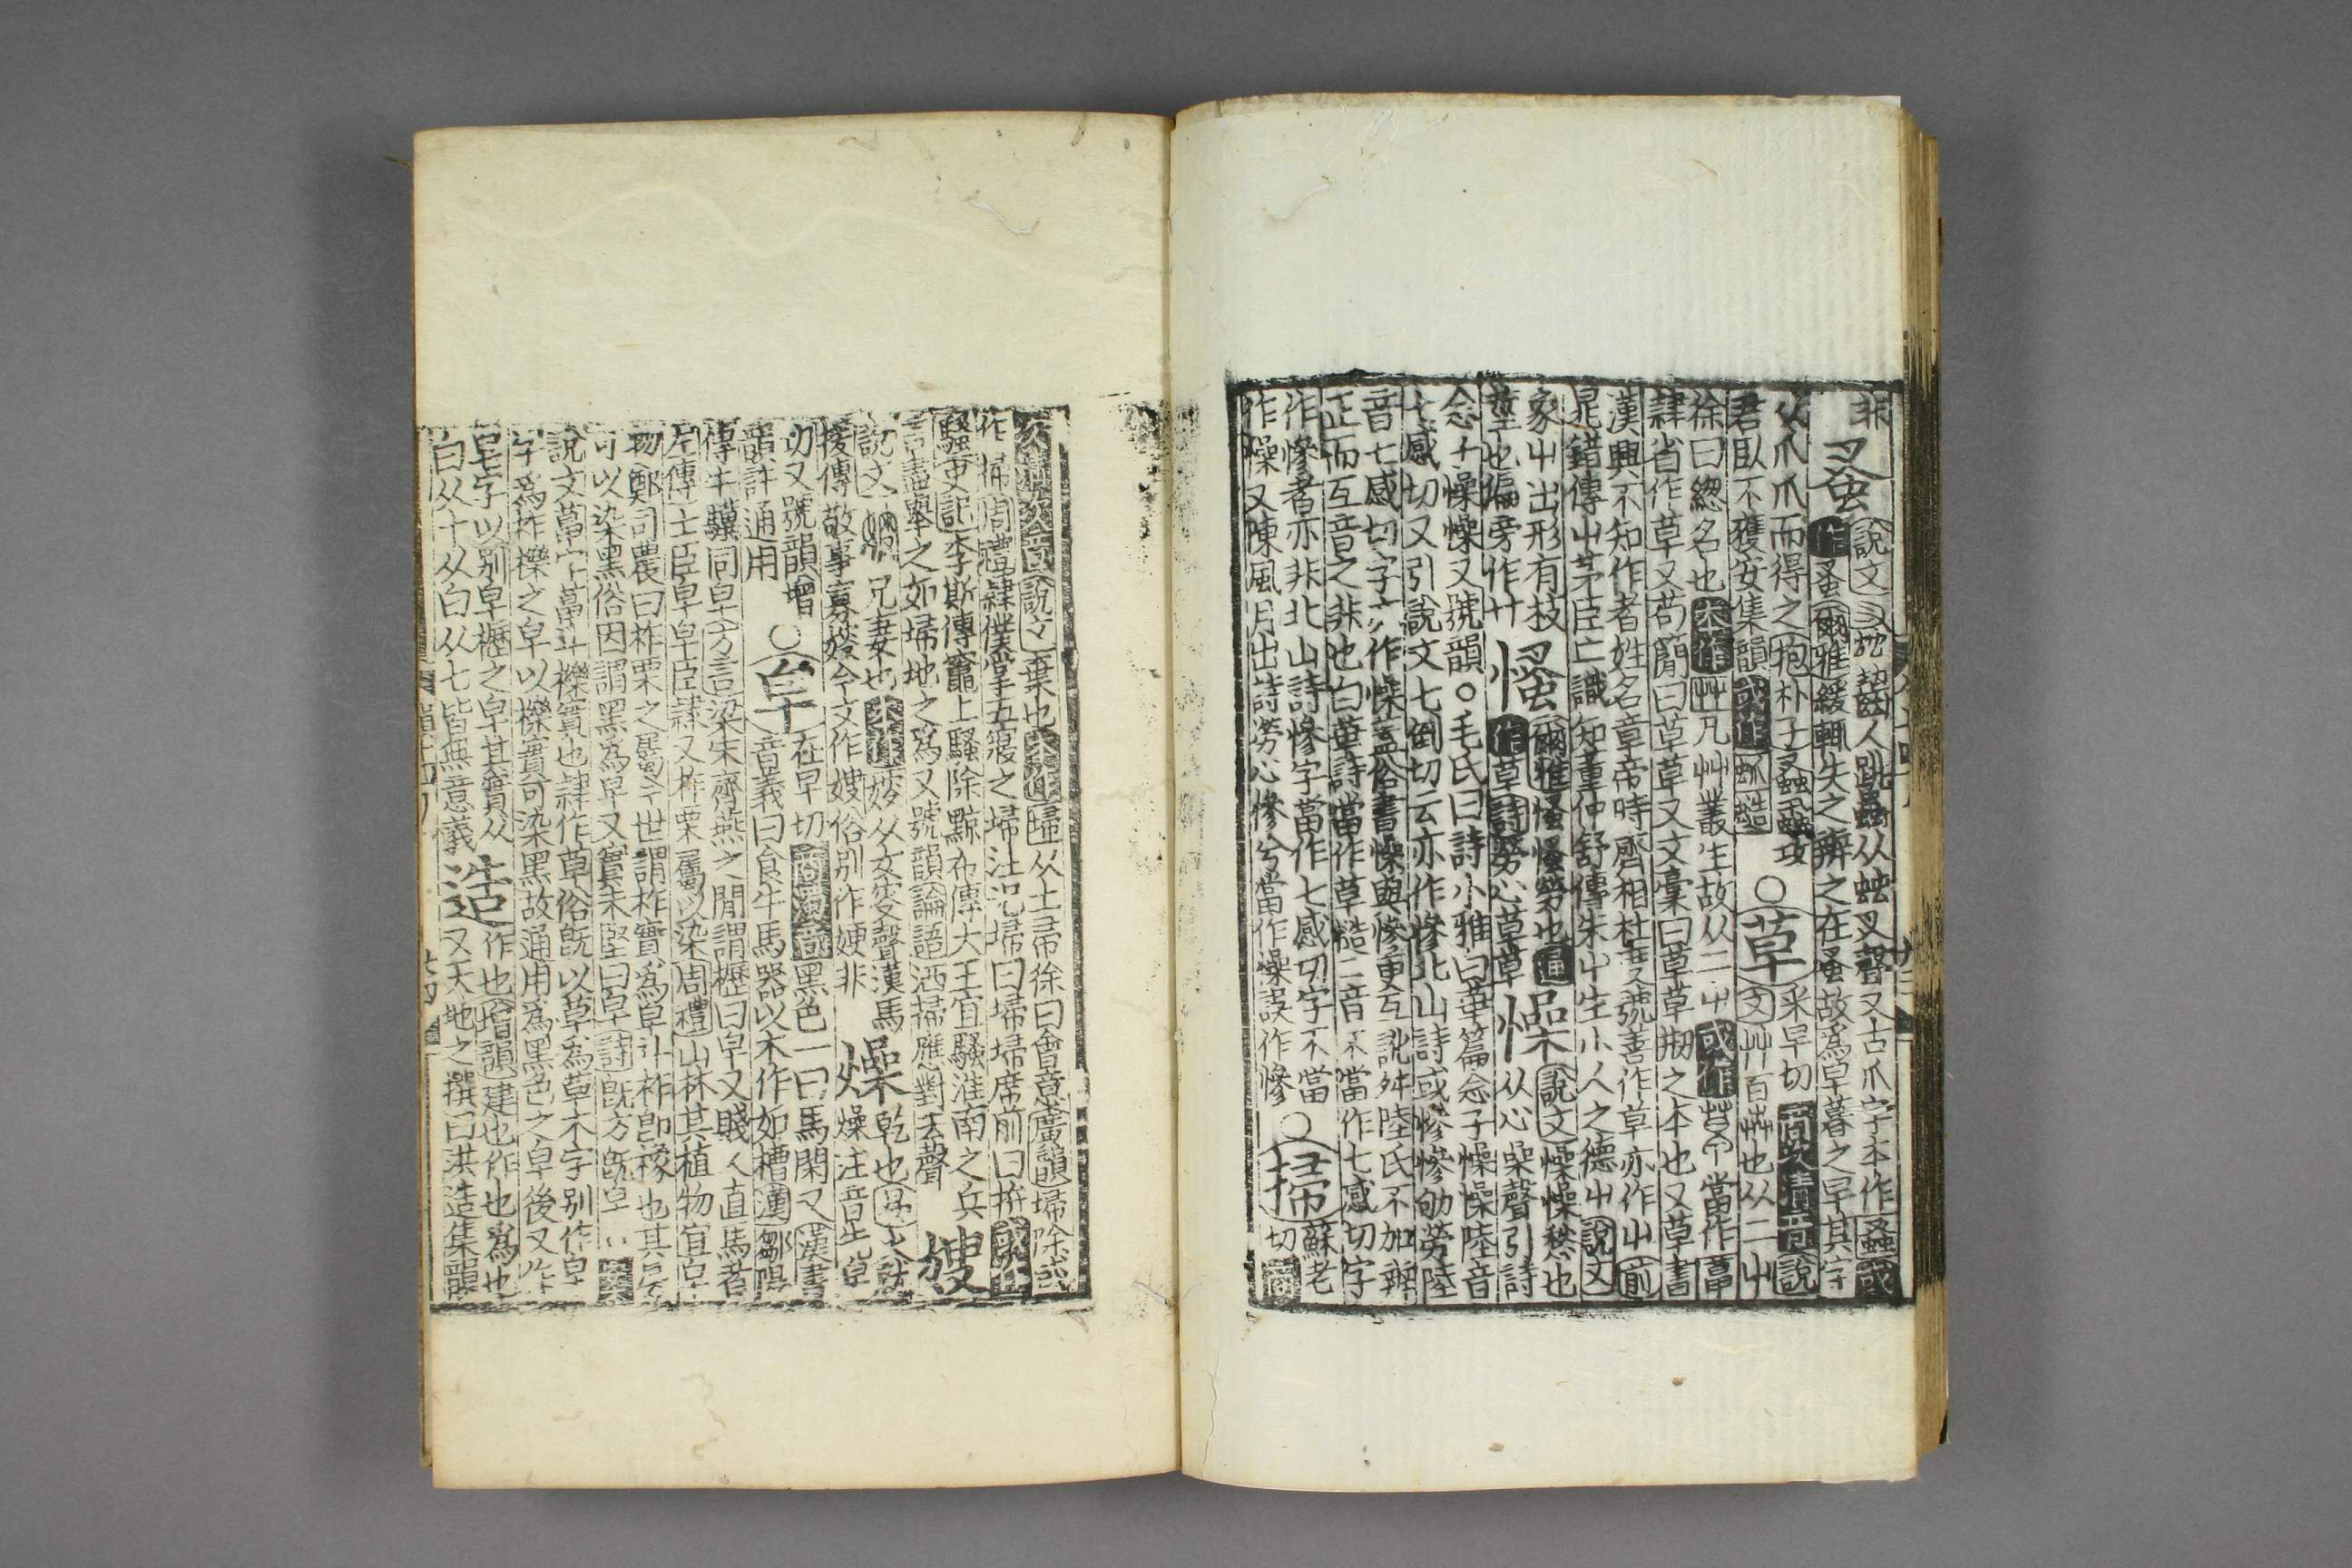 非 蚤 說文 齧人跳蟲从䖵叉聲叉古爪字本作蝨或
作蚤爾雅緩輒失之辨之在蚤故爲早暮之早其字
从爪爪而得之抱朴子 攻
君臥不獲安集韻或作 ○草 采早切 商次清音說
文艸百艸也从二屮
徐曰緫名也本作艸凡艸叢生故从二屮或作 當作
隷省作草又苟簡曰草草又文稾曰草草 之本也又草書
漢興不知作者姓名章帝時齊相杜 號善作草亦作屮前
鼂錯傳屮茅臣亡識知董仲舒傳朱屮生小人之德屮說文
家屮出形有枝
莖也偏旁作艹 慅 爾雅慅慅勞也通
作草詩勞心草草 懆 說文懆懆愁也
从心喿聲引詩
念子懆懆又號韻○毛氏曰詩小雅白華篇念子懆懆陸音
七感切又引說文七倒切云亦作慘北山詩或慘慘劬勞陸
音七感切字亦作懆蓋俗書懆與慘更互訛舛陸氏不加辨
正而互音之非也白華詩當作草慥二音不當作七感切字
作慘者亦非北山詩慘字當作七感切字不當
作懆又陳風月出詩勞心慘兮當作懆誤作慘 ○掃 蘇老
切 商
次清次音說文棄也本作埽从土帚徐曰會意廣韻埽除或
作掃周禮隷僕掌五寢之埽注氾埽曰埽埽席前曰拚或作
騷史記李斯傳竈上騷除黥布傳大王宜騷淮南之兵
盡舉之如埽地之爲又號韻論語洒掃應對去聲 嫂
說文 兄妻也本作㛮从女叜聲漢馬
援傳敬事寡㛐今文作嫂俗別作㛐非 燥 乾也
燥注音
切又號韻增
韻許通用 ○皁 在早切商濁音黑色一曰馬閑又漢書
音義曰食牛馬器以木作如槽漢鄒陽
傳牛驥同皁方言梁宋齊燕之閒謂櫪曰皁又賤人直馬者
左傳士臣皁皁臣隷又柞栗屬以染周禮山林其植物宜皁
物鄭司農曰柞栗之屬今世謂柞實爲皁斗柞卽橡也其
可以染黑俗因謂黑爲皁又實未堅曰皁詩旣方旣皁
說文草字草斗櫟實也隷作草俗旣以草爲草木字別作皁
字爲柞櫟之皁以櫟實可染黑故通用爲黑色之皁後又作
皂字以別皁櫪之皁其實从
白从十从白从七皆無意義 造 作也增韻建也作也爲也
又天地之撰曰洪造集韻